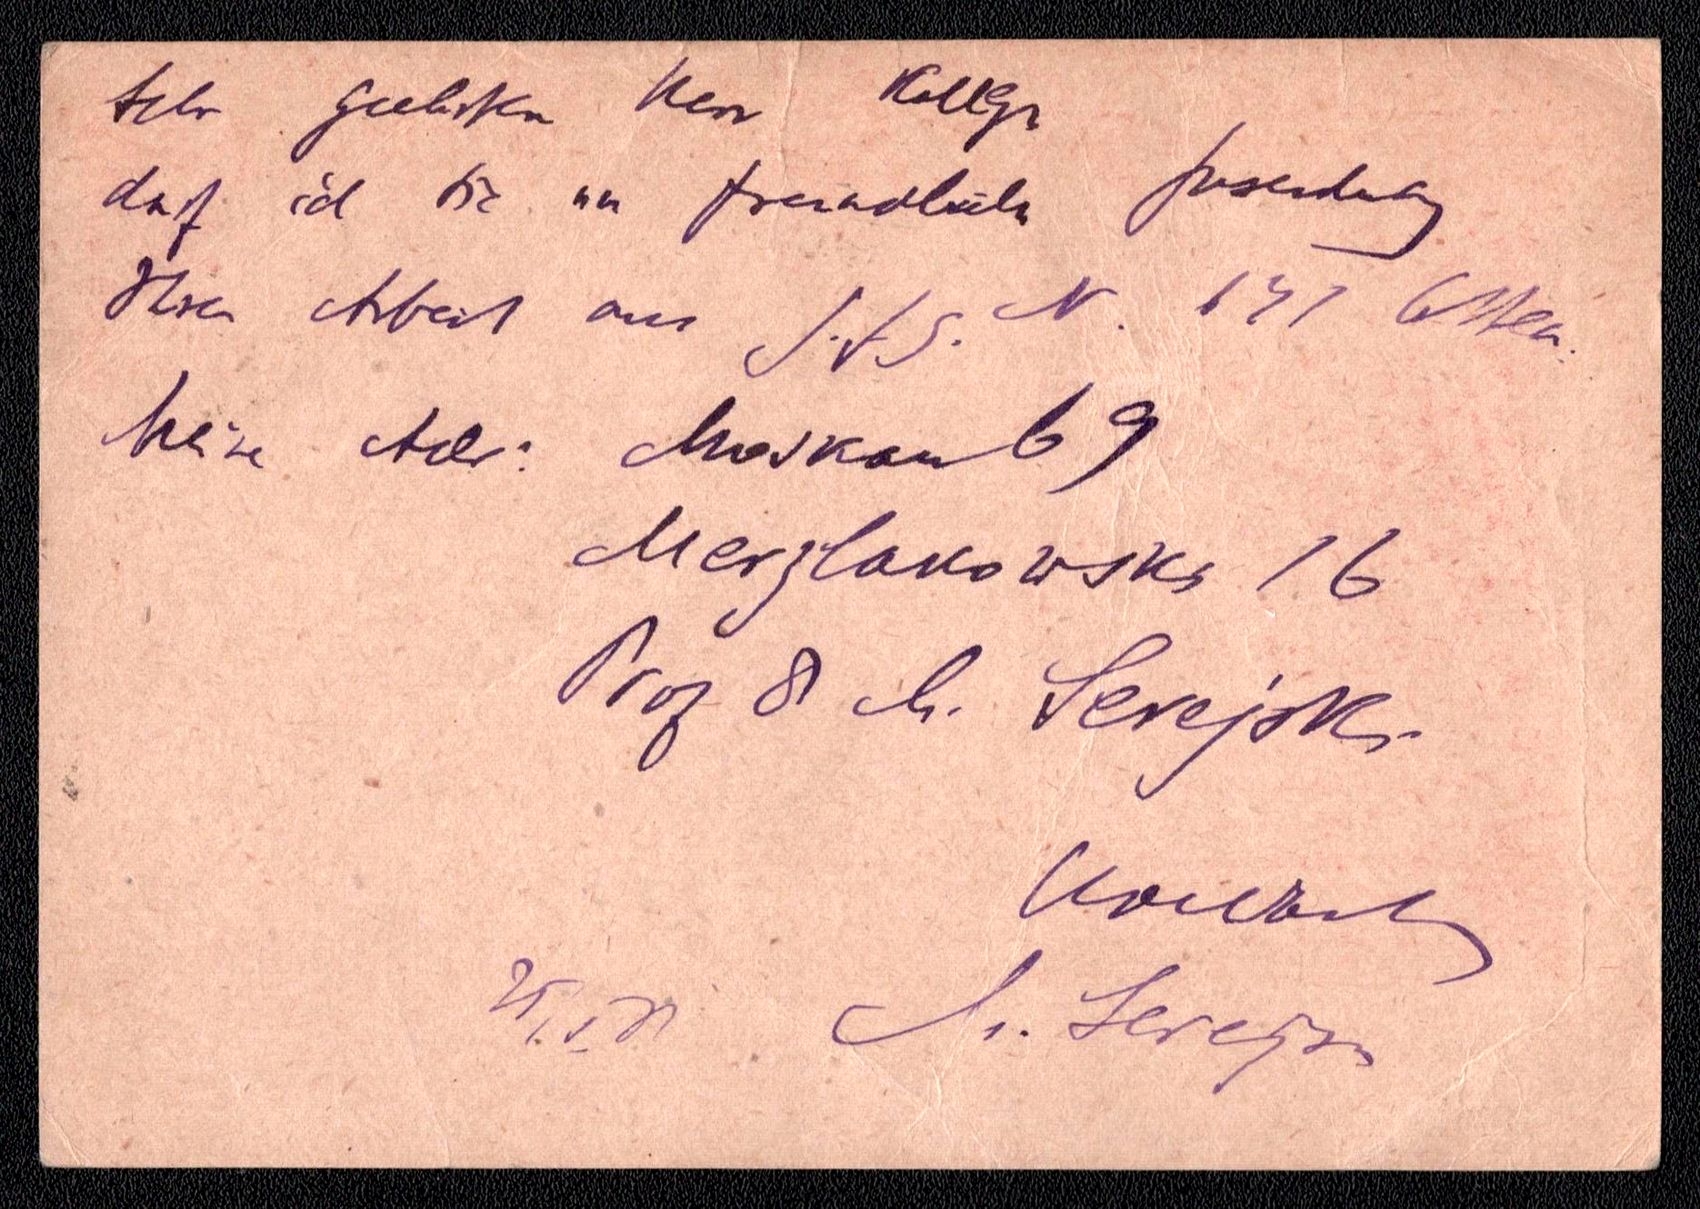 Sehr geehrter Herr Kollege
darf ich Sie um freundliche Zusendung
Ihrer Arbeit aus N. 147 bitten.
Meine Adr: Moskau 69
Merzlakowski 16
Prof Dr M. Serejski
M. Serejski